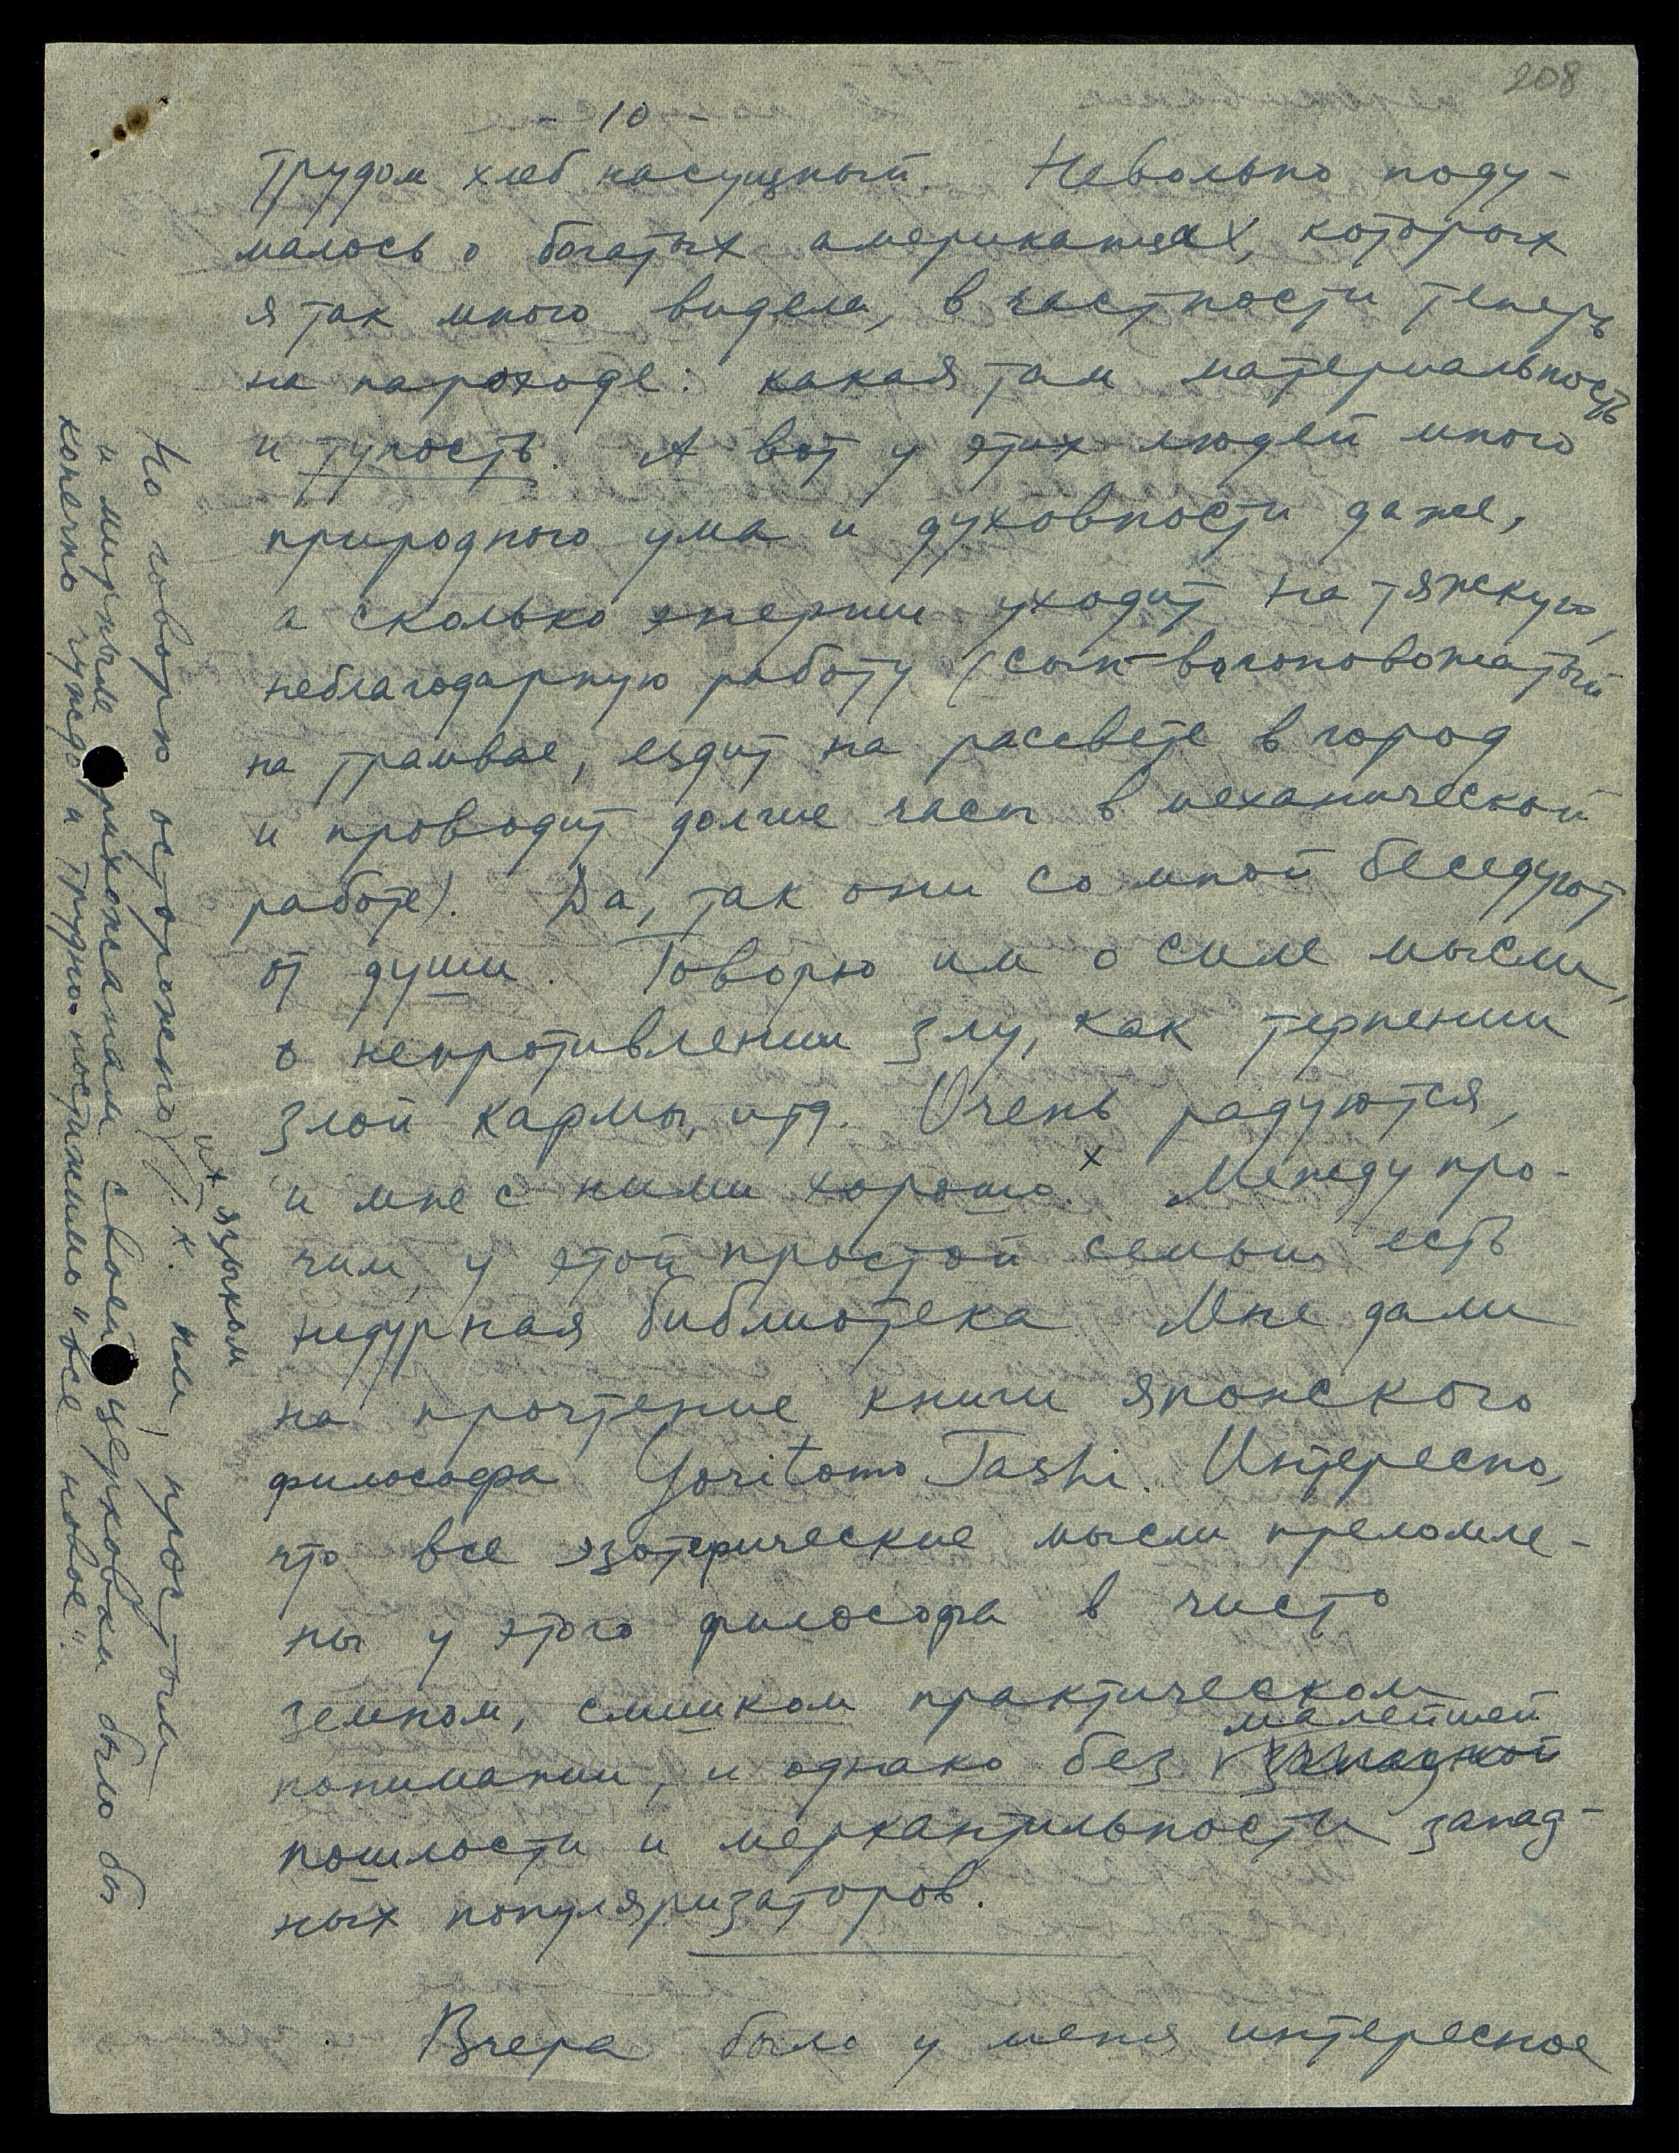 208
- 10 -
трудом хлеб насущный. Невольно поду-
малось о богатых американцах, которых
я так много видела, в частности теперь
на пароходе: какая там материальность
и тупость. А вот у этих людей много
природного ума и духовности даже,
а сколько энергии уходит на тяжкую,
неблагодарную работу (сын-вагоновожатый
на трамвае, ездит на рассвете в город
и проводит долгие часы в механической
работе). Да, так они со мной беседуют
от души. Говорю им о силе мысли,
о непротивлении злу, как терпении
злой кармы, итд. Очень радуются,
и мне с ними хорошо.х Между про-
чим, у этой простой семьи есть
недурная библиотека. Мне дали
на прочтение книги японского
философа Yoritomo Tashi. Интересно,
что все эзотерические мысли преломле-
ны у этого философа в чисто
земном, слишком практическом
понимании, и однако без малейшей западной
пошлости и меркантильности запад-
ных популяризаторов.
Вчера было у меня интересное
х Но говорю осторожно, т.к. им, простым
их языком
и мирным прихожанам своей церкви было бы
конечно чуждо и трудно-постижимо "все новое".